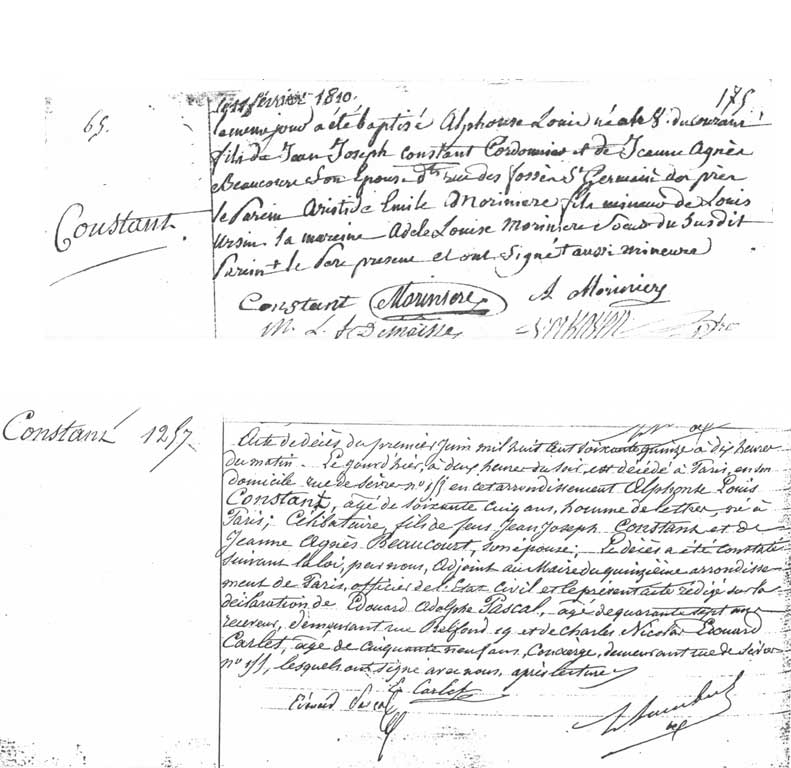 le 11 février 1810.
175.
65.
Constant.
le même jour a été baptisé Alphonse Louis né le 8 du courant
fils de Jean Joseph constant Cordonnier et de Jeanne Agnès
Beaucourt son Epouse dt rue des fossés St Germain des près
le Parein Aristide Emile Moriniere fils mineur de Louis
Ursin la mareine Adele Louise Moriniere soeur du susdit
Parein le Pere présent et ont Signé aussi mineure
Constant Moriniere A Moriniere
M. L. Demaisse
Constant 1257
Acte de décès du premier Juin mil huit cent soixante quinze à dix heures
du matin. Le jour d'hier, à deux heures du soir, est décédé à Paris, en son
domicile rue de Sèvres no 155 en cet arrondissement Alphonse Louis
Constant, agé de soixante cinq ans, homme de lettres, né à
Paris; Célibataire, fils de feus Jean Joseph Constant et de
Jeanne Agnès Beaucourt, son épouse; Le décès a été constaté
suivant la loi, par nous, adjoint au Maire du quinzième arrondisse-
ment de Paris, officier de l'Etat Civil et le présent acte rédigé sur la
déclaration de Edouard Adolphe Pascal, agé de quarante sept ans
receveur, demeurant rue Belfond 19 et de Charles Nicolas Edouard
Carlet, agé de Cinquante neuf ans, Concierge, demeurant rue de Sèvres
no 155, lesquels ont signé avec nous, après lecture
Carlet
Edouard Pascal